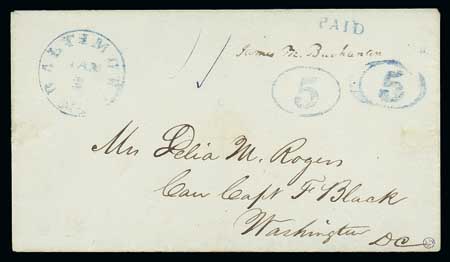 PAID
BALTIMORE
JAN
James M. Buchanan
5
5
Mrs Delia M. Rogers
Care Capt F Black
Washington
DC